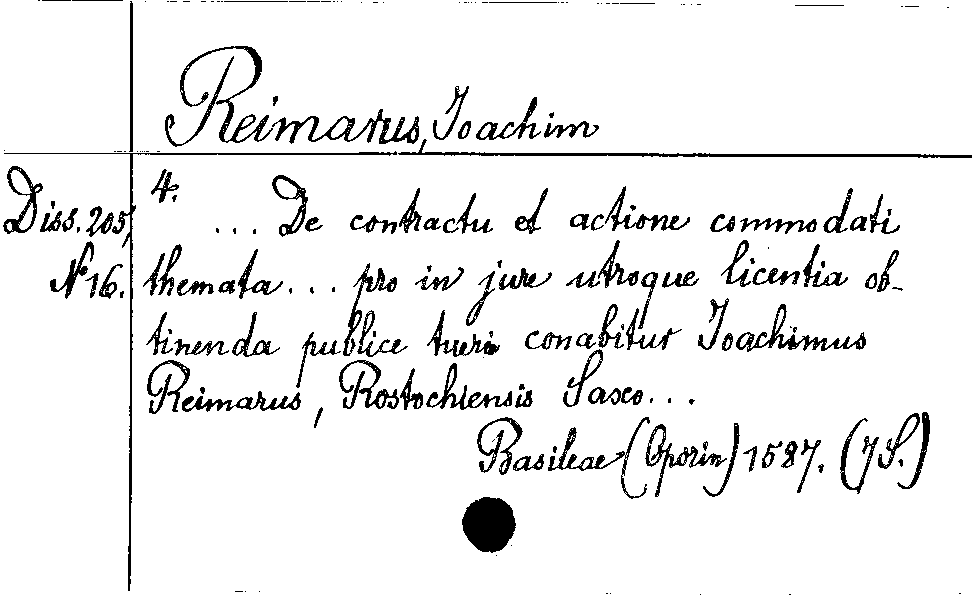 Reimarus, Joachim
4.
Diss. 205,
No 16.
... De contractu et actione commodati
themata... pro in jure utroque licentia ob-
tinenda publice tueri conabitur Joachimus
Reimarus, Rostochiensis Saxo...
Basileae (Oporin) 1587. (7 S.)